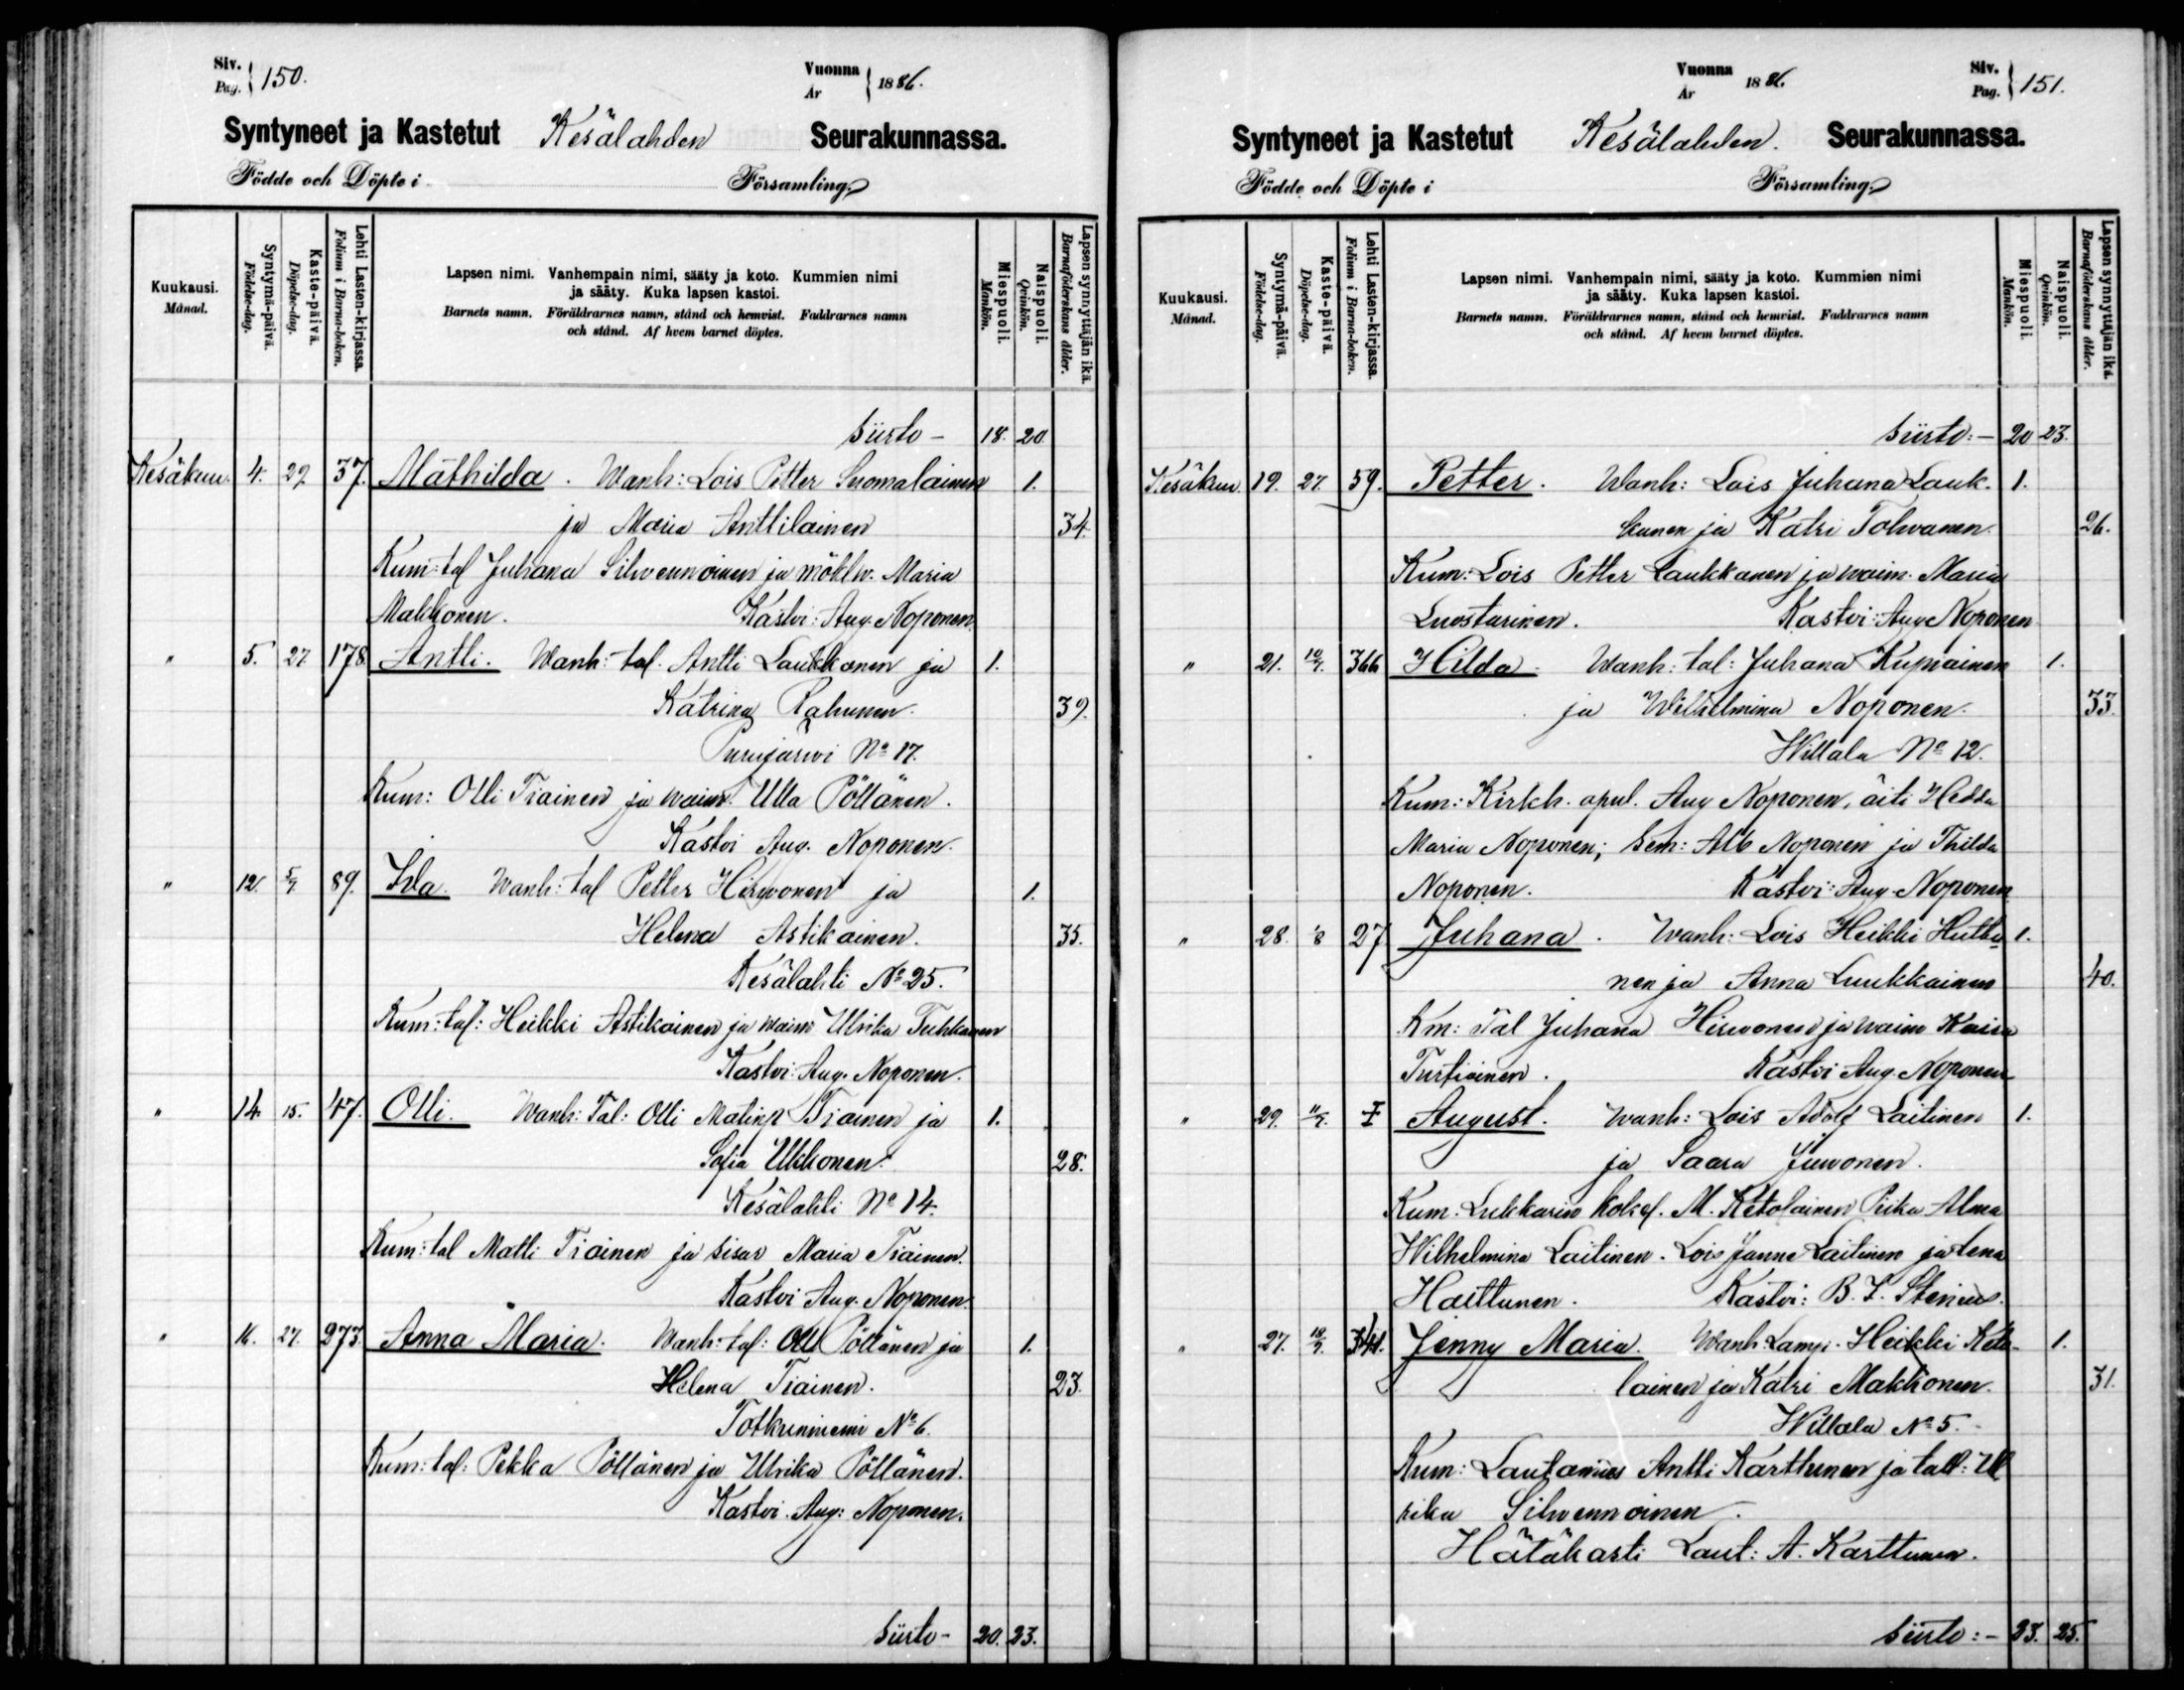 Siv. Pag. } 150.
Vuonna År } 1886.
Syntyneet ja Kastetut Kesälahden Seurakunnassa.
Födde och Döpte i Församling.
Kuukausi. Månad.
Syntymä-päivä. Födelse-dag.
Kaste-päivä. Döpelse-dag.
Lehti Lasten-kirjassa. Folium i Barna-boken.
Lapsen nimi. Vanhempain nimi, sääty ja koto. Kummien nimi
ja sääty. Kuka lapsen kastoi.
Barnets namn. Föräldrarnes namn, stånd och hemvist. Faddrarnes namn
och stånd. Af hvem barnet döptes.
Miespuoli. Mankön.
Naispuoli. Qvinkön.
Lapsen synnyttäjän ikä. Barnaföderskans ålder.
Siirto - 18. 20.
Kesäkuu. 4. 27. 37. Mathilda. Wanh: Lois Petter Suomalainen 1.
ja Maria Anttilainen 34.
Kum: tal Juhana Silwennoinen ja mökl w. Maria
Makkonen. Kastoi: Aug. Noponen
" 5. 27 178. Antti. Wanh: tal. Antti Laukkanen ja 1.
Katrina Rahunen. 39.
Purujärwi No 17.
Kum: Olli Tiainen ja waim. Ulla Pöllänen.
Kastoi Aug. Noponen.
" 12. 5/7 89. Ida. Wanh: tal Petter Hirwonen ja 1.
Helena Astikainen. 35.
Kesälahti No 25.
Kum: tal: Heikki Astikainen ja waim Ulrika Tuhkanen
Kastoi: Aug. Noponen.
" 14. 15. 47. Olli. Wanh: Tal: Olli Matinp Tiainen ja 1.
Sofia Ukkonen. 28.
Kesälahti No 14.
Kum: tal Matti Tiainen ja sisar Maria Tiainen.
Kastoi Aug. Noponen.
" 16. 27. 273. Anna Maria. Wanh: tal: Olli Pöllänen ja 1.
Helena Tiainen. 23.
Totkunniemi No 6.
Kum: tal: Pekka Pöllänen ja Ulrika Pöllänen.
Kastoi. Aug: Noponen.
Siirto - 20. 23.
Vuonna År 1886.
Siv. Pag. } 151.
Syntyneet ja Kastetut Kesälahden. Seurakunnassa.
Födde och Döpte i Församling.
Kuukausi. Månad.
Syntymä-päivä. Födelse-dag.
Kaste-päivä. Döpelse-dag.
Lehti Lasten-kirjassa. Folium i Barna-boken.
Lapsen nimi. Vanhempain nimi, sääty ja koto. Kummien nimi
ja sääty. Kuka lapsen kastoi.
Barnets namn. Föräldrarnes namn, stånd och hemvist. Faddrarnes namn
och stånd. Af hvem barnet döptes.
Miespuoli. Mankön.
Naispuoli. Qvinkön.
Lapsen synnyttäjän ikä. Barnaföderskans ålder.
Siirto: - 20 23.
Kesäkuu. 19. 27. 59. Petter. Wanh: Lois Juhana Lauk- 1.
kanen ja Katri Tolwanen. 26.
Kum: Lois Petter Laukkanen ja waim. Maria
Luostarinen. Kastoi: Aug Noponen
" 21. 10/7. 366 Hilda. Wanh: tal: Juhana Kupiainen 1.
ja Wilhelmina Noponen. 33.
Willala No 12.
Kum: Kirkh. apul. Aug Noponen, äiti Hedda
Maria Noponen; Sem: Alb Noponen ja Thilda
Noponen. Kastoi: Aug. Noponen
" 28. 1/8 27 Juhana. Wanh: Lois Heikki Huttu 1.
nen ja Anna Luukkainen 40.
Km: Tal Juhana Hirwonen ja waim Kaisa
Turtiainen. Kastoi Aug. Noponen
" 29. 11/7. I August. Wanh: Lois Adolf Laitinen 1.
ja Saara Juwonen.
Kum. Lukkarin kokel. M. Ketolainen Piika Alma
Wilhelmina Laitinen. Lois Janne Laitinen ja Lena
Haittunen. Kastoi: B. F. Stenius.
" 27. 18/7. 341. Jenny Maria. Wanh: Lamp. Heikki Keto- 1.
lainen ja Katri Makkonen. 31.
Willala No 5.
Kum: Lautamies Antti Karttunen ja tall: Ul
rika Silwennoinen.
Hätäkasti Laut: A. Karttunen.
Siirto: - 23. 25.